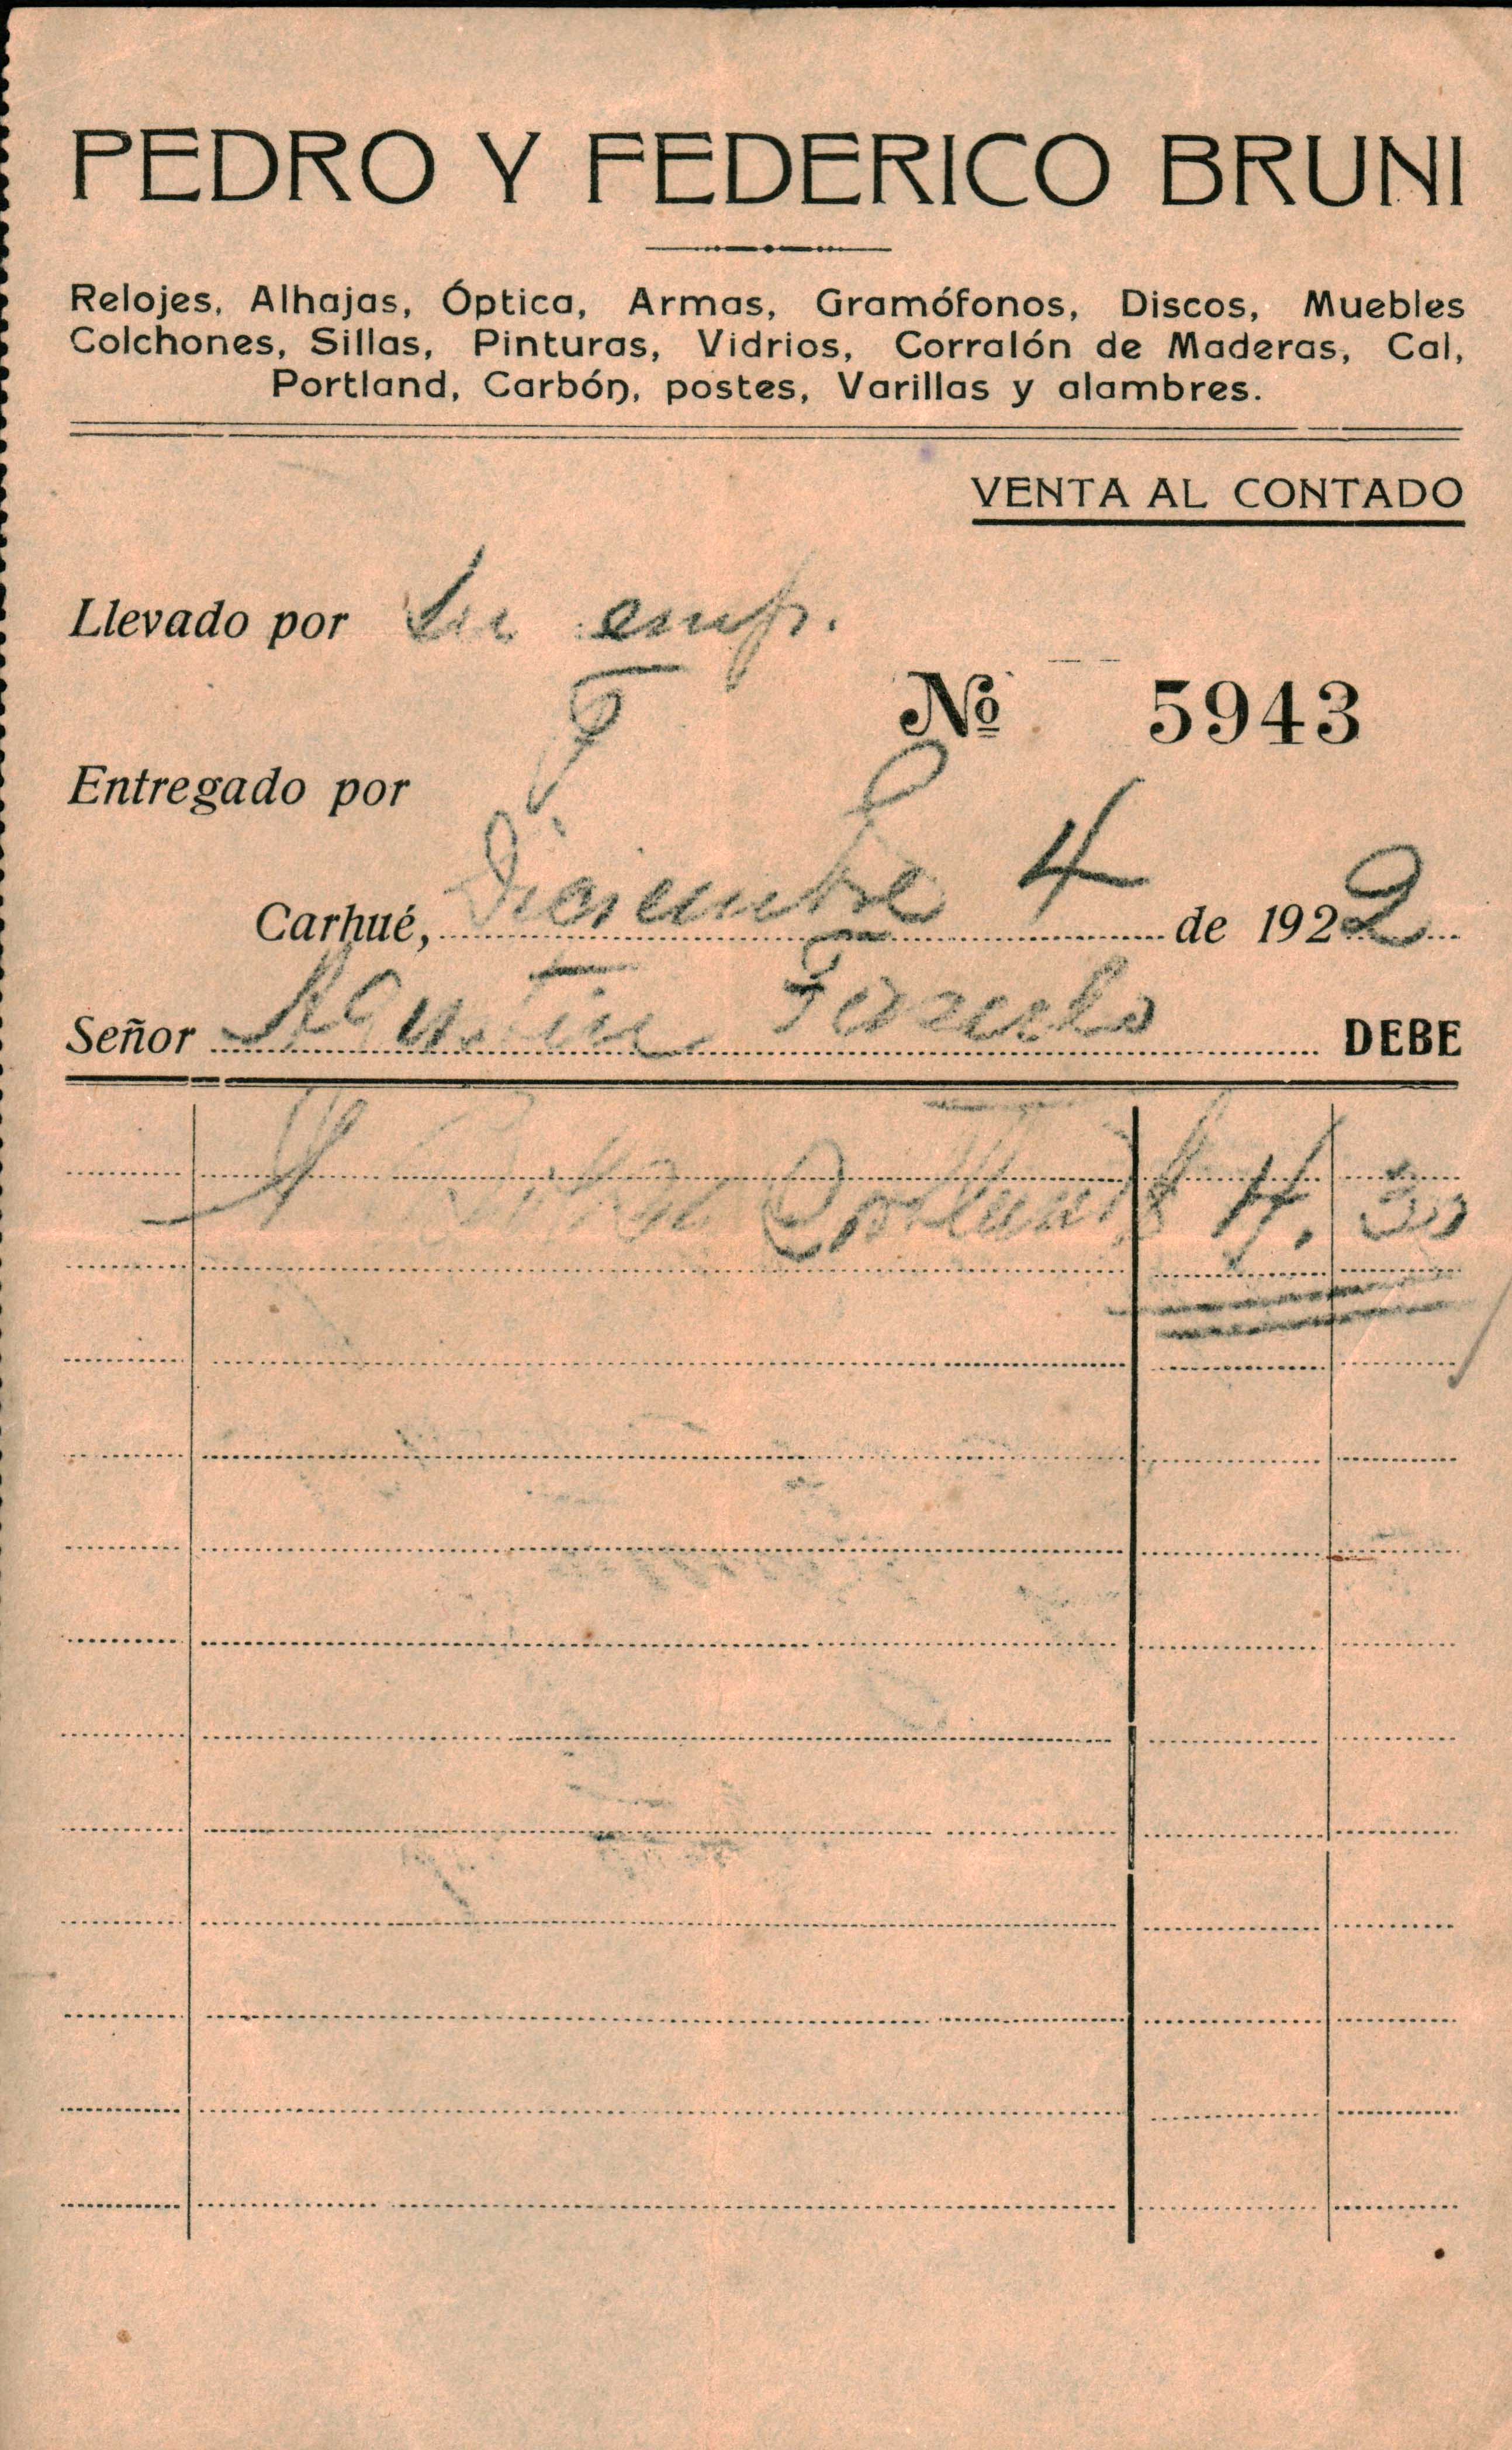 PEDRO Y FEDERICO BRUNI
Relojes, Alhajas, Óptica, Armas, Gramófonos, Discos, Muebles
Colchones, Sillas, Pinturas, Vidrios, Corralón de Maderas, Cal,
Portland, Carbón, postes, Varillas y alambres.
VENTA AL CONTADO
Llevado por Su emp.
Nº 5943
Entregado por
Carhué, Diciembre 4 de 1922
Señor Agustin DEBE
Portland $ 4.30